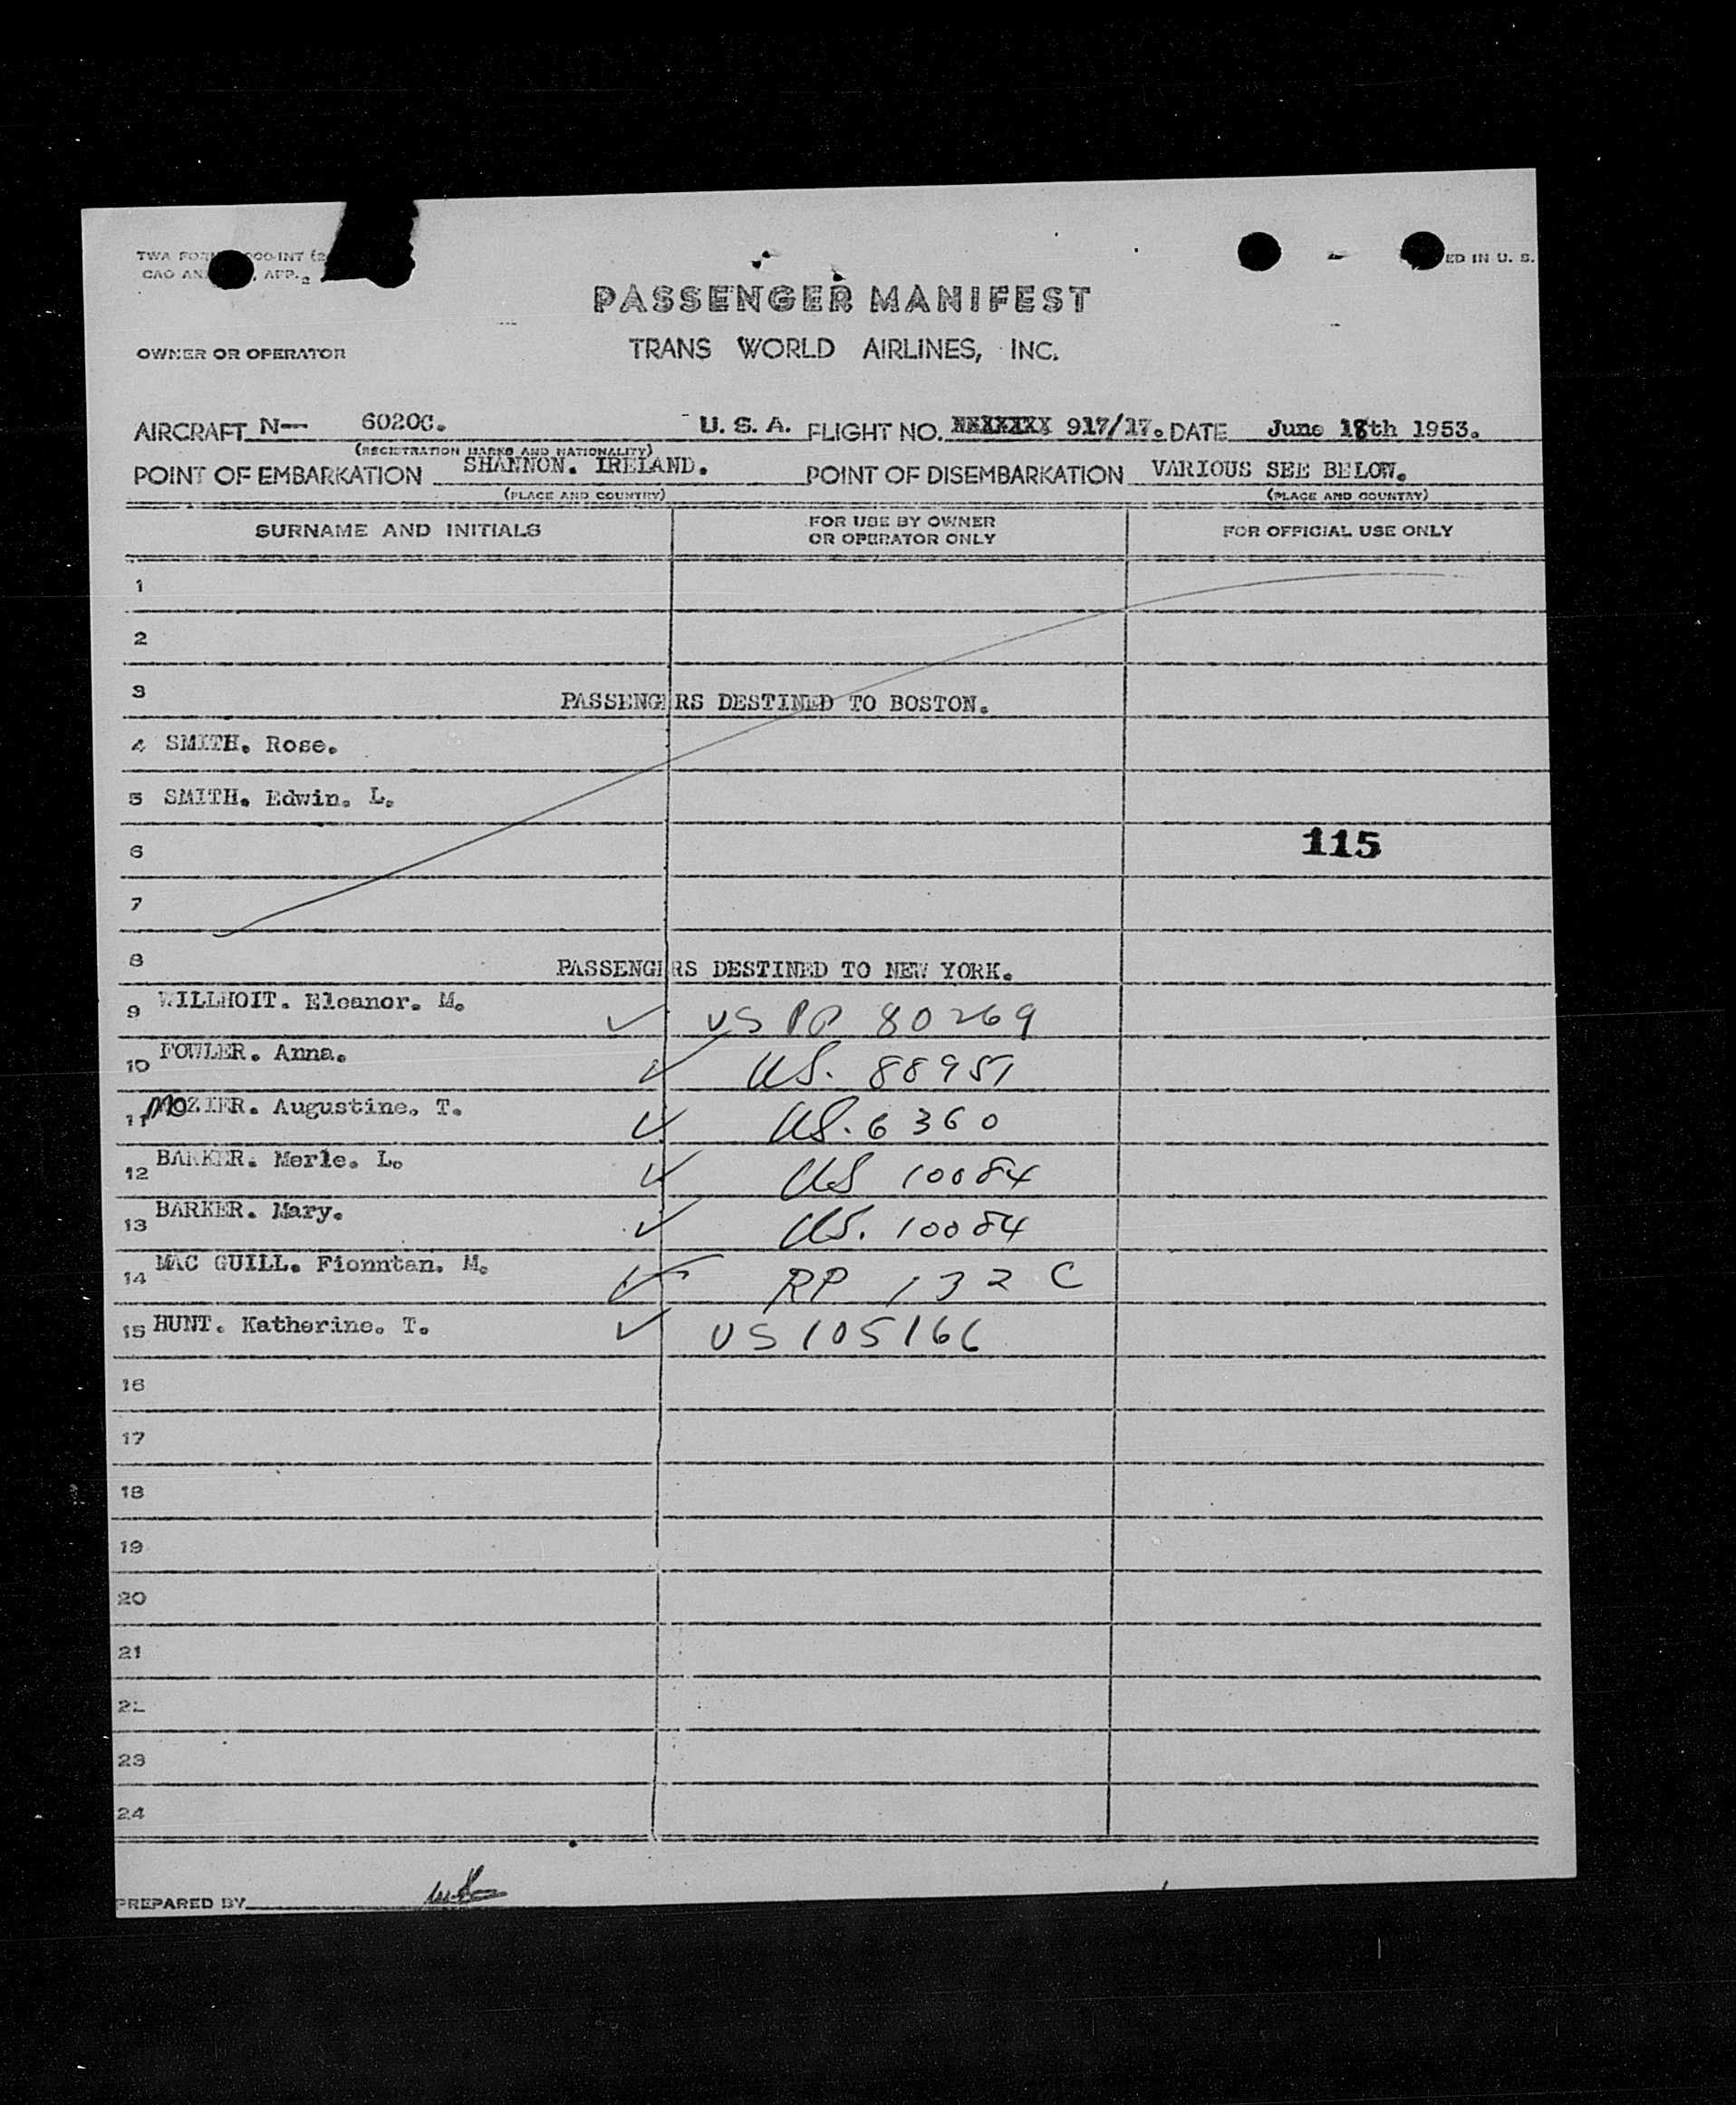 TWA FORM 000-INT (2
CAO AN , APP. 2
ED IN U. S.
PASSENGER MANIFEST
OWNER OR OPERATOR TRANS WORLD AIRLINES, INC.
AIRCRAFT N— 6020C. U. S. A. FLIGHT NO. 917/17. DATE June 18th 1953.
(REGISTRATION MARKS AND NATIONALITY)
POINT OF EMBARKATION SHANNON. IRELAND. POINT OF DISEMBARKATION VARIOUS SEE BELOW.
(PLACE AND COUNTRY) (PLACE AND COUNTRY)
SURNAME AND INITIALS FOR USE BY OWNER OR OPERATOR ONLY FOR OFFICIAL USE ONLY
1
2
3 PASSENGERS DESTINED TO BOSTON.
4 SMITH. Rose.
5 SMITH. Edwin. L.
6 115
7
8 PASSENGERS DESTINED TO NEW YORK.
9 WILLHOIT. Eleanor. M. ✓ US PP 80269
10 FOWLER. Anna. ✓ US. 88951
11 MOZIER. Augustine. T. ✓ US. 6360
12 BARKER. Merle. L. ✓ US 10084
13 BARKER. Mary. ✓ US. 10084
14 MAC GUILL. Fionntan. M. ✓ RP 132 C
15 HUNT. Katherine. T. ✓ US 105166
16
17
18
19
20
21
22
23
24
PREPARED BY